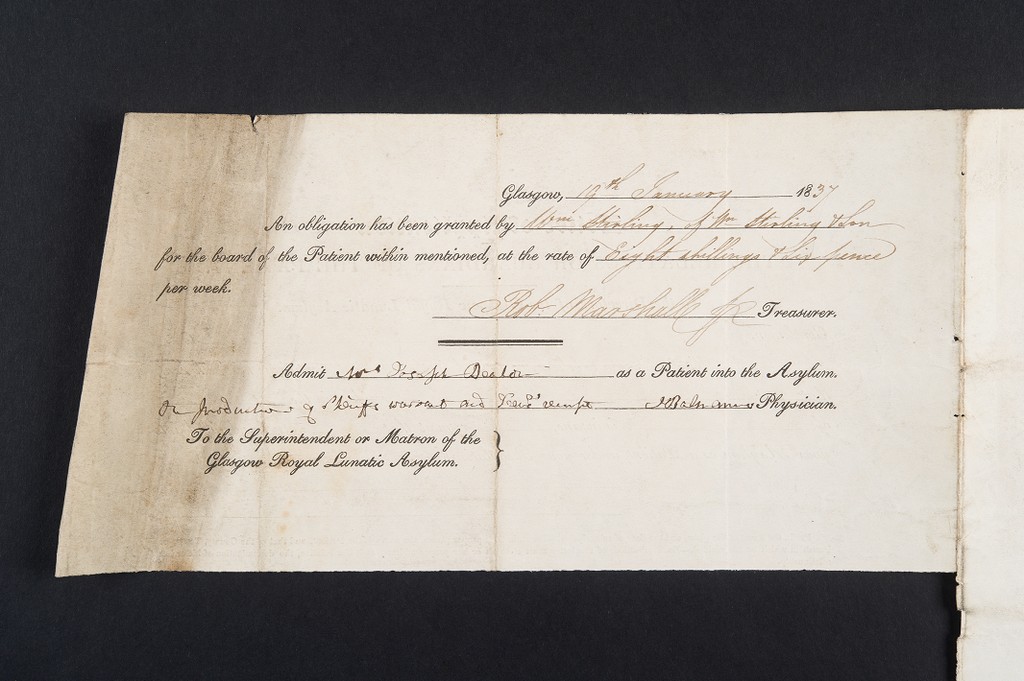 Glasgow, 19th January 1837
An obligation has been granted by Stirling, of Wm Stirling & Son
for the board of the Patient within mentioned, at the rate of Eight shillings & Six pence
per week.
Rob. Marshall Jr Treasurer.
Admit Joseph as a Patient into the Asylum.
On production of Sheriffs warrant and Physician.
To the Superintendent or Matron of the
Glasgow Royal Lunatic Asylum.